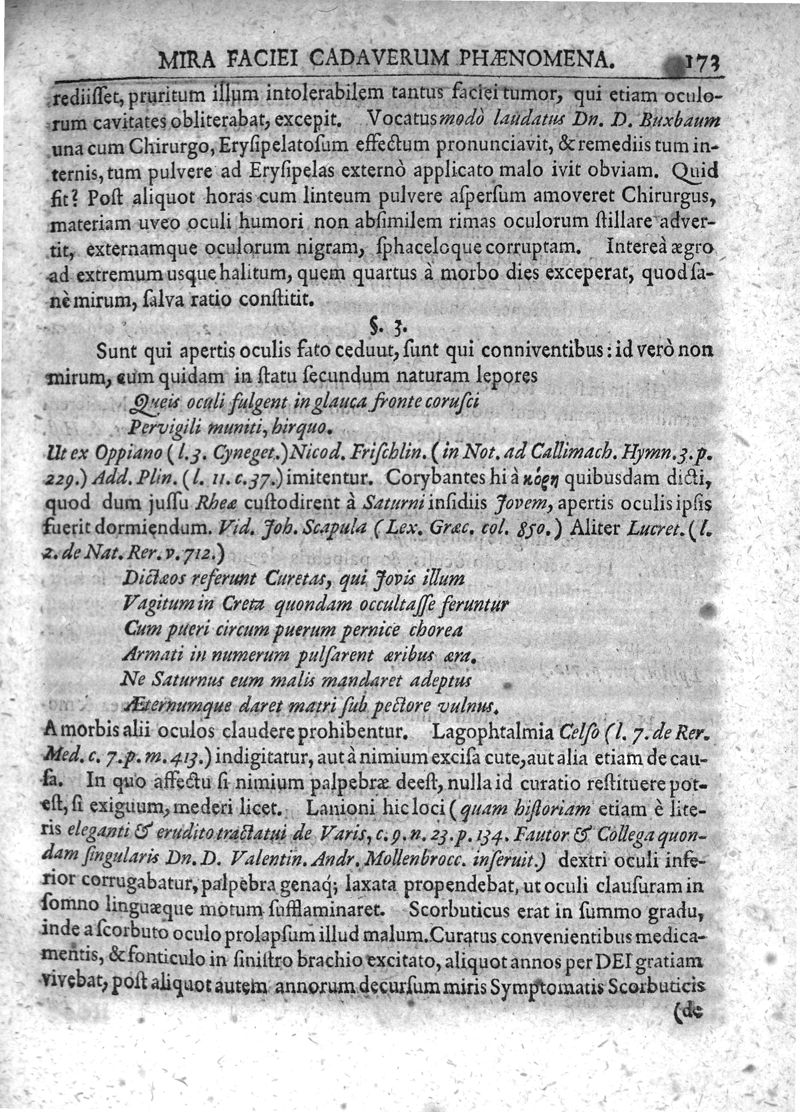 MIRA FACIEI CADAVERUM PHÆNOMENA. 173
rediiſſet, pruritum illum intolerabilem tantus faciei tumor, qui etiam oculo-
rum cavitates obliterabat, excepit. Vocatus modò laudatus Dn. D. Buxbaum
una cum Chirurgo, Eryſipelatoſum effectum pronunciavit, & remediis tum in-
ternis, tum pulvere ad Eryſipelas externò applicato malo ivit obviam. Quid
fit? Poſt aliquot horas cum linteum pulvere aſperſum amoveret Chirurgus,
materiam uveo oculi humori non abſimilem rimas oculorum ſtillare adver-
tit, externamque oculorum nigram, ſphaceloque corruptam. Intereà ægro
ad extremum usque halitum, quem quartus à morbo dies exceperat, quod ſa-
nè mirum, ſalva ratio conſtitit.
§. 3.
Sunt qui apertis oculis fato ceduut, ſunt qui conniventibus: id verò non
mirum, cum quidam in ſtatu ſecundum naturam lepores
Queis oculi fulgent in glauca fronte coruſci
Pervigili muniti, hirquo.
Ut ex Oppiano (l. 3. Cyneget.) Nicod. Friſchlin. (in Not. ad Callimach. Hymn. 3. p.
229.) Add. Plin. (l. 11. c. 37.) imitentur. Corybantes hi à κόρη quibusdam dicti,
quod dum juſſu Rheæ cuſtodirent à Saturni inſidiis Jovem, apertis oculis ipſis
fuerit dormiendum. Vid. Joh. Scapula (Lex. Græc. col. 850.) Aliter Lucret. (l.
2. de Nat. Rer. v. 712.)
Dictæos referunt Curetas, qui Jovis illum
Vagitum in Creta quondam occultaſſe feruntur
Cum pueri circum puerum pernice chorea
Armati in numerum pulſarent æribus æra.
Ne Saturnus eum malis mandaret adeptus
Æternumque daret matri ſub pectore vulnus.
A morbis alii oculos claudere prohibentur. Lagophtalmia Celſo (l. 7. de Rer.
Med. c. 7. p. m. 413.) indigitatur, aut à nimium exciſa cute, aut alia etiam de cau-
ſa. In quo affectu ſi nimium palpebræ deeſt, nulla id curatio reſtituere pot-
eſt, ſi exiguum, mederi licet. Lanioni hic loci (quam hiſtoriam etiam è lite-
ris eleganti & erudito tractatui de Varis, c. 9. n. 23. p. 134. Fautor & Collega quon-
dam ſingularis Dn. D. Valentin. Andr. Mollenbrocc. inſeruit.) dextri oculi infe-
rior corrugabatur, palpebra genaq; laxata propendebat, ut oculi clauſuram in
ſomno linguæque motum ſufflaminaret. Scorbuticus erat in ſummo gradu,
inde a ſcorbuto oculo prolapſum illud malum. Curatus convenientibus medica-
mentis, & fonticulo in ſiniſtro brachio excitato, aliquot annos per DEI gratiam
vivebat, poſt aliquot autem annorum decurſum miris Symptomatis Scorbuticis
(de